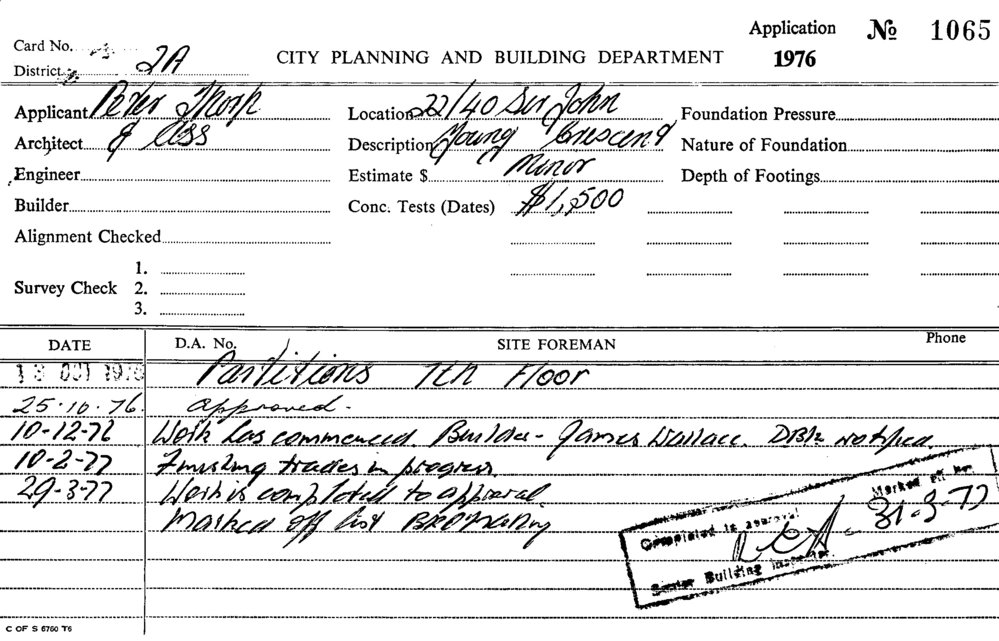 Application № 1065
Card No.
District 2A
CITY PLANNING AND BUILDING DEPARTMENT
1976
Applicant Peter Thorp
Location 22/40 Sir John
Foundation Pressure
Architect & Ass
Description Young Crescent
Nature of Foundation
Engineer
Estimate $ Minor
Depth of Footings
Builder
Conc. Tests (Dates) $1,500
Alignment Checked
Survey Check
1.
2.
3.
DATE D.A. No. SITE FOREMAN Phone
13 OCT 1976 Partitions 7th Floor
25.10.76. approved.
10-12-76 Work has commenced. Builder - James Wallace. notified
10-2-77 Finishing trades in progress
29-3-77 Work is completed to approval
Marked off list
Marked off
31-3-77
Completed to approval
Senior Building Inspector.
C OF S 6760 T6